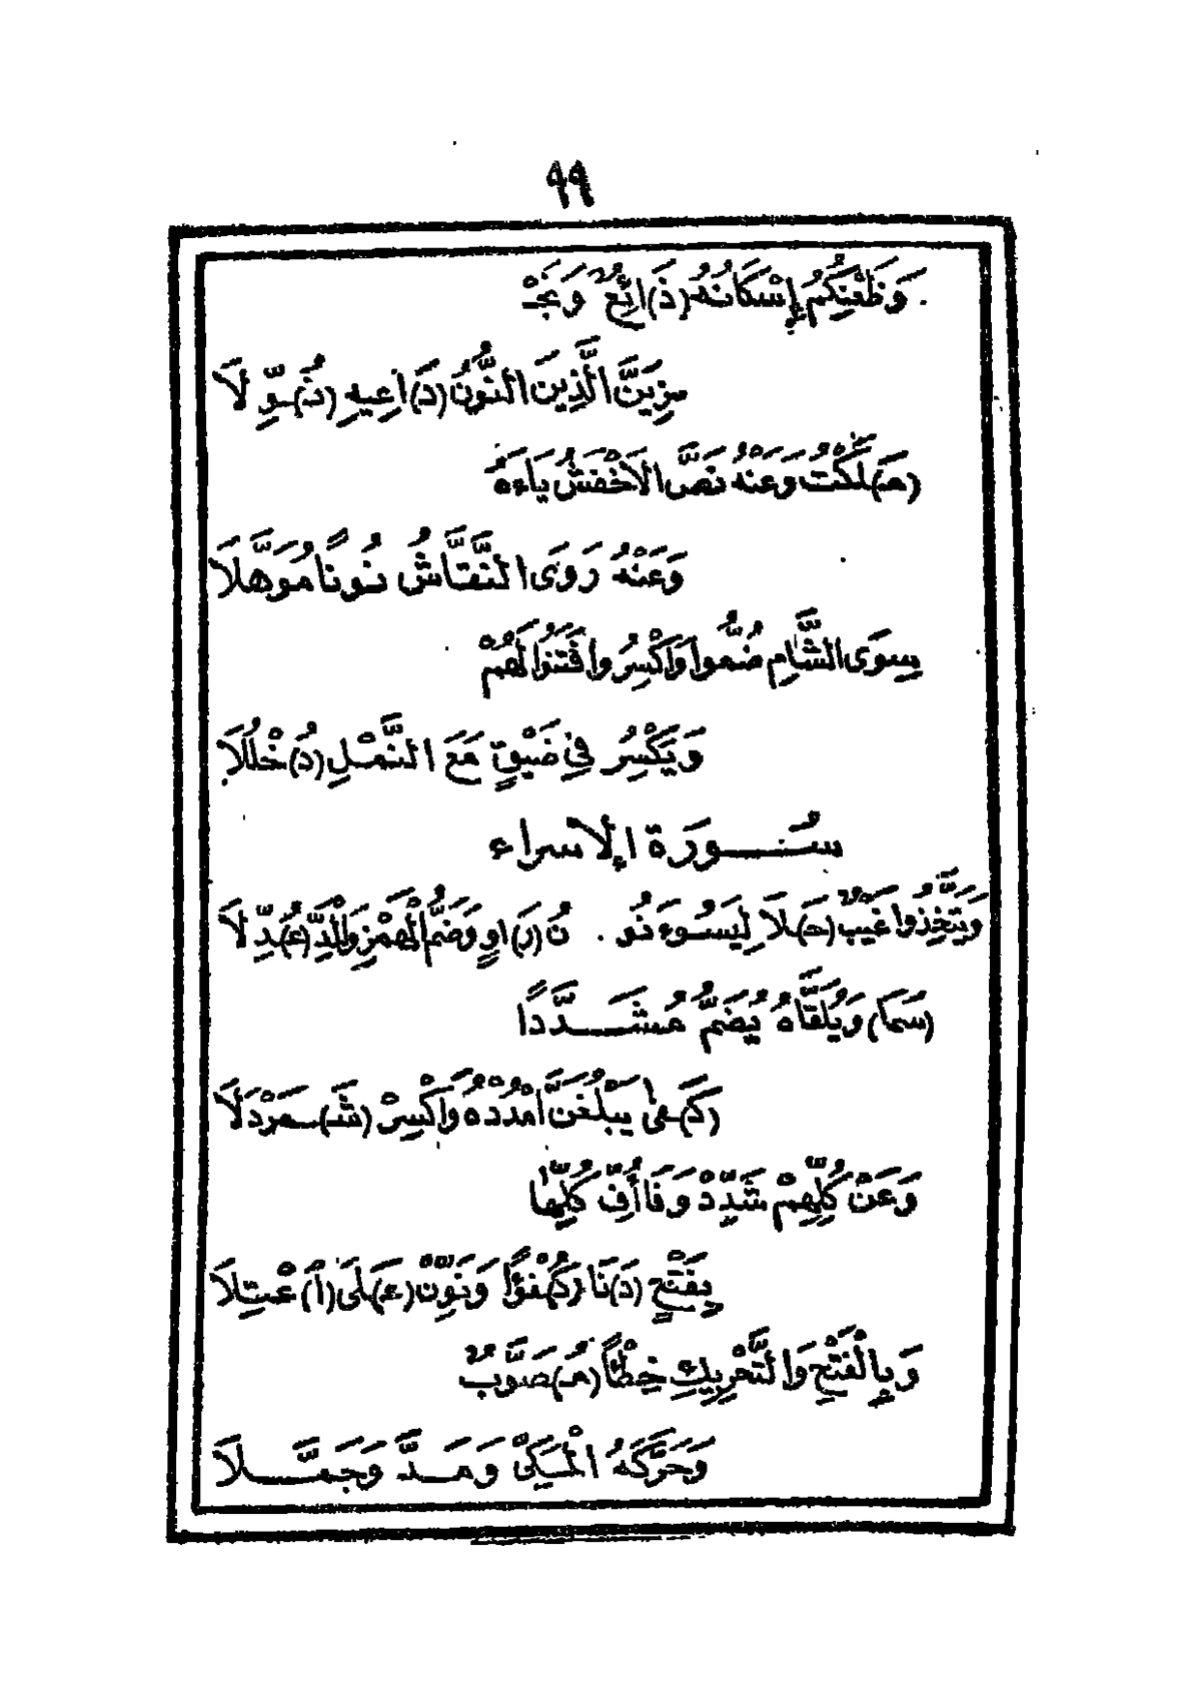 ٩٩
وَظَعْنِكُمُ إِسْكَانُهُ (ذَ)ائِعٌ وَنَجْـ
ـزِيَنَّ الَّذِينَ النُّونُ (دَ)اعِيهِ (نُـ)ـوِّلَا
(مَـ)لَكْتُ وَعَنْهُ نَصَّ الْأَخْفَشُ يَاءَهُ
وَعَنْهُ رَوَى النَّقَّاشُ نُونًا مُوَهَّلَا
سِوَى الشَّامِ ضُمُّوا وَاكْسِرُوا فَتَنُوا لَهُمْ
وَيُكْسِرُ فِي ضَيْقٍ مَعَ النَّمْلِ (دُ)خْلُلَا
سُورَة الإِسراء
وَيَتَّخِذُوا غَيْبٌ (حَـ)لَا لِيَسُوءَ نُو . نُ (رَ)اوٍ وَضَمُّ الْهَمْزِ وَالْمَدِّ (عُـ)دِّلَا
(سَمَا) وَيُلَقَّاهُ يُضَمُّ مُشَدَّدًا
(كَـ)فَى يَبْلُغَنَّ امْدُدْهُ وَاكْسِرْ (شَـ)ـمَرْدَلَا
وَعَنْ كُلِّهِمْ شَدِّدْ وَفَا أُفِّ كُلِّهَا
بِفَتْحٍ (دَ)نَا (كُـ)فْؤًا وَنَوِّنْ (عَـ)لَى (ا)عْتِلَا
وَبِالْفَتْحِ وَالتَّحْرِيكِ خِطْأً (مُـ)صَوَّبٌ
وَحَرَّكَهُ الْمَكِّيُّ وَمَدَّ وَجَمَّلَا